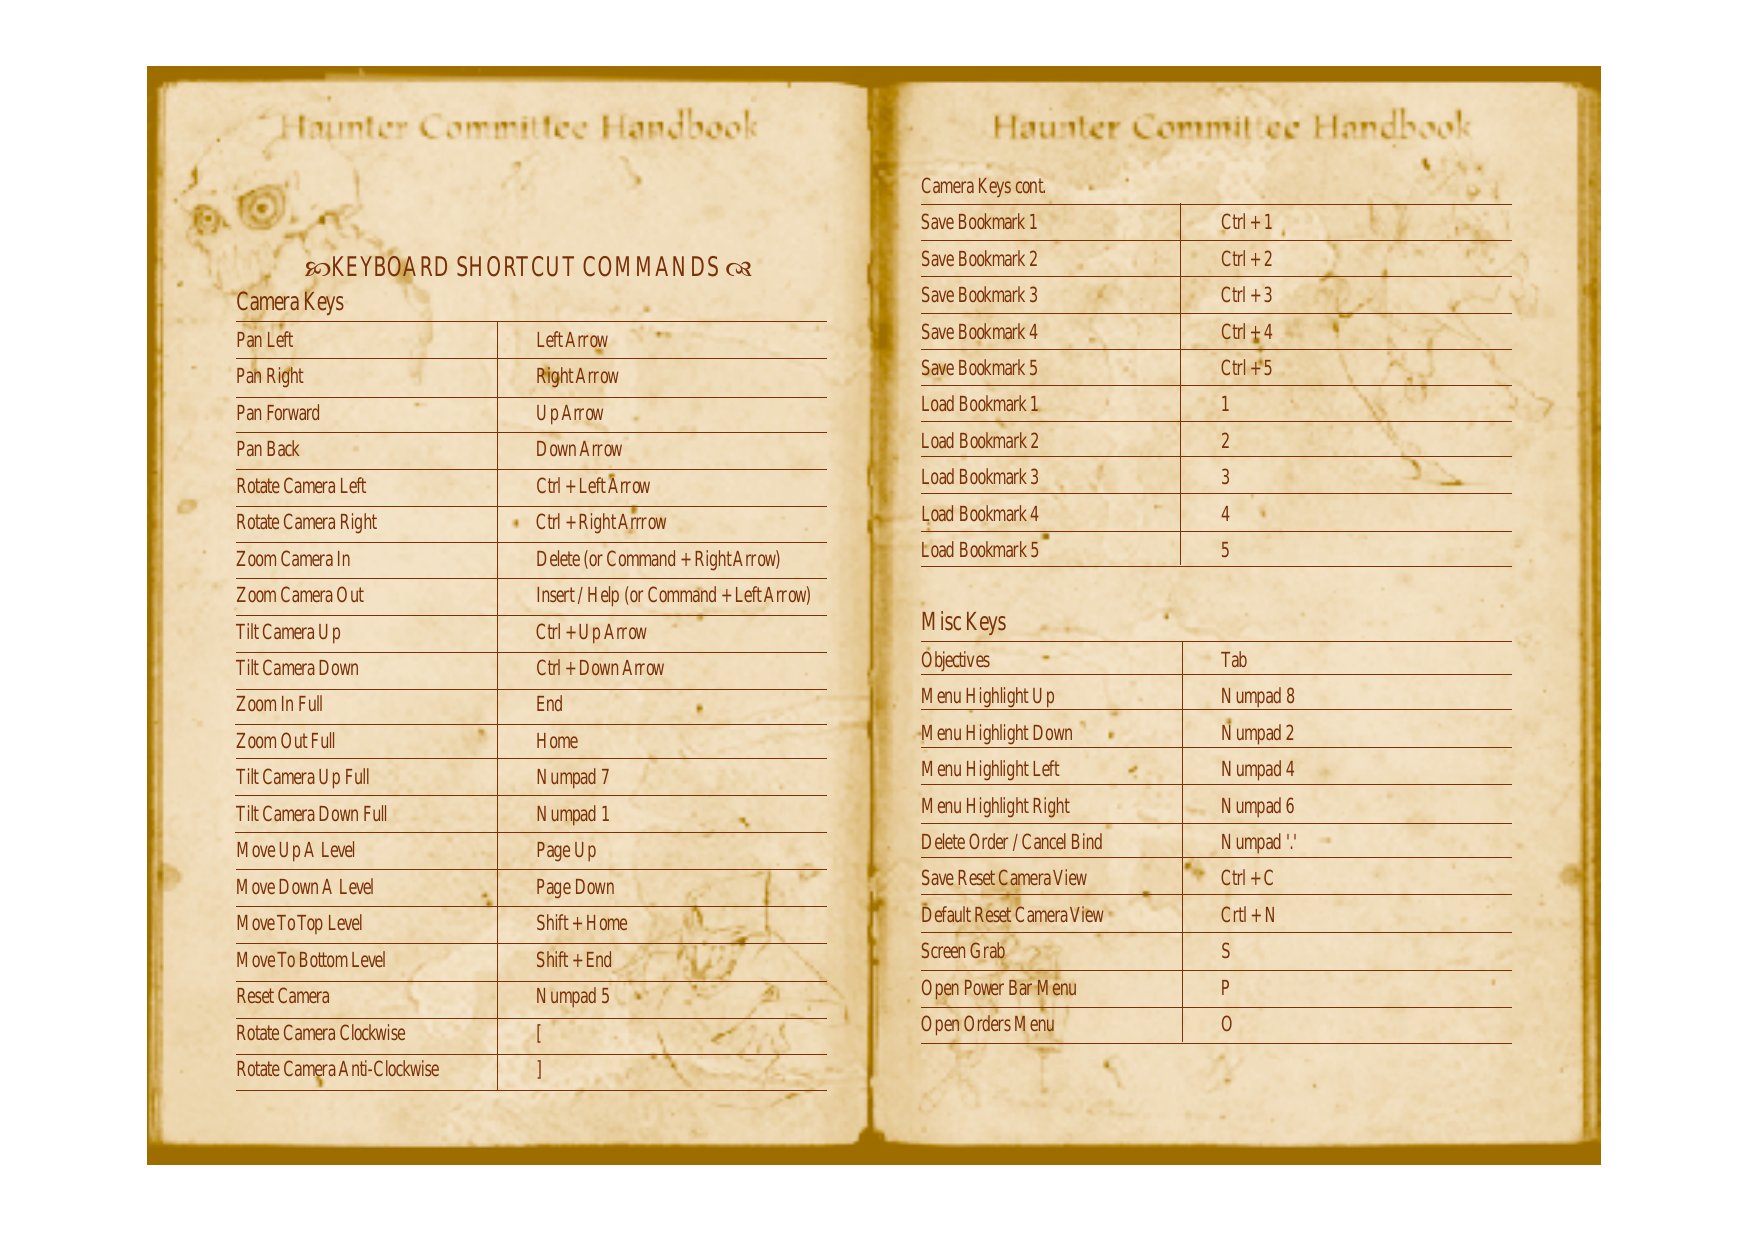 Haunter Committee Handbook
KEYBOARD SHORTCUT COMMANDS
Camera Keys
Pan Left Left Arrow
Pan Right Right Arrow
Pan Forward Up Arrow
Pan Back Down Arrow
Rotate Camera Left Ctrl + Left Arrow
Rotate Camera Right Ctrl + Right Arrrow
Zoom Camera In Delete (or Command + Right Arrow)
Zoom Camera Out Insert / Help (or Command + Left Arrow)
Tilt Camera Up Ctrl + Up Arrow
Tilt Camera Down Ctrl + Down Arrow
Zoom In Full End
Zoom Out Full Home
Tilt Camera Up Full Numpad 7
Tilt Camera Down Full Numpad 1
Move Up A Level Page Up
Move Down A Level Page Down
Move To Top Level Shift + Home
Move To Bottom Level Shift + End
Reset Camera Numpad 5
Rotate Camera Clockwise [
Rotate Camera Anti-Clockwise ]
Haunter Committee Handbook
Camera Keys cont.
Save Bookmark 1 Ctrl + 1
Save Bookmark 2 Ctrl + 2
Save Bookmark 3 Ctrl + 3
Save Bookmark 4 Ctrl + 4
Save Bookmark 5 Ctrl + 5
Load Bookmark 1 1
Load Bookmark 2 2
Load Bookmark 3 3
Load Bookmark 4 4
Load Bookmark 5 5
Misc Keys
Objectives Tab
Menu Highlight Up Numpad 8
Menu Highlight Down Numpad 2
Menu Highlight Left Numpad 4
Menu Highlight Right Numpad 6
Delete Order / Cancel Bind Numpad '.'
Save Reset Camera View Ctrl + C
Default Reset Camera View Crtl + N
Screen Grab S
Open Power Bar Menu P
Open Orders Menu O